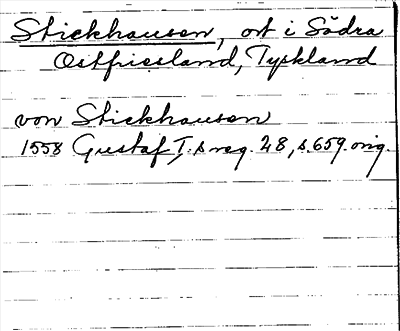 Stickhausen, ort i Södra
Ostfriesland, Tyskland
von Stickhausen
1558 Gustaf I.s reg. 28, s. 659. orig.